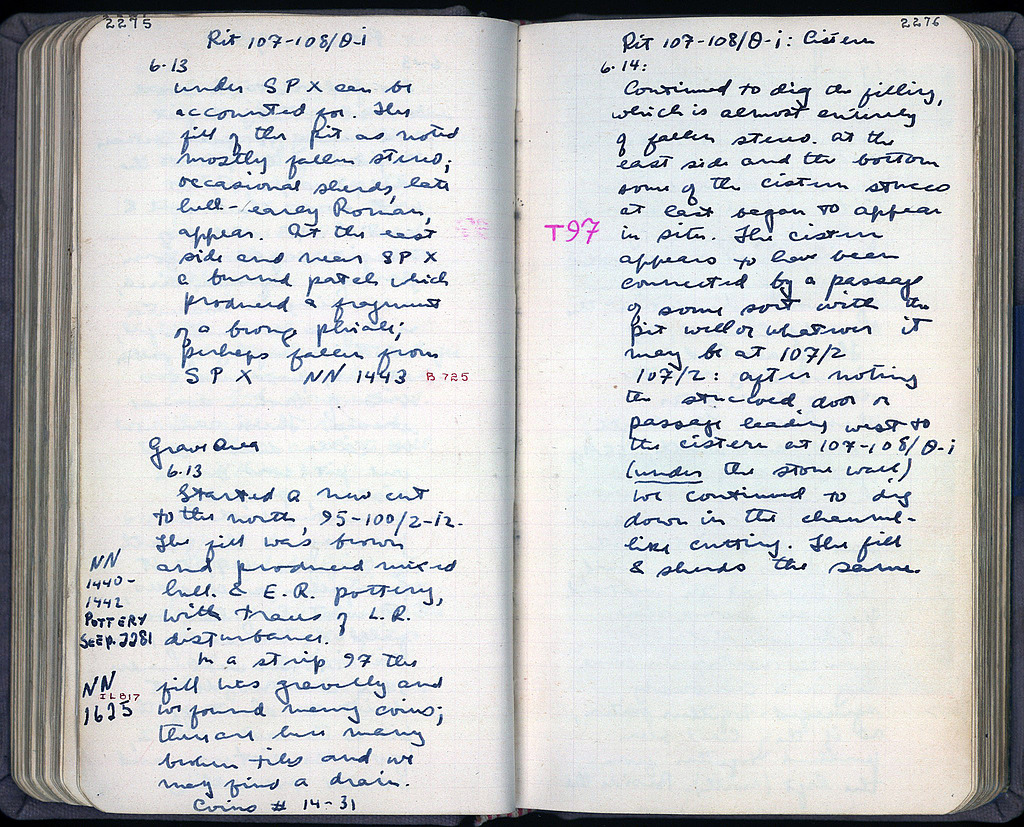 2275
Pit 107-108/Θ-i
6.13
under S P X can be
accounted for. The
fill of the pit as noted
mostly fallen stereo;
occasional sherds, late
hell-/early Roman,
appear. At the east
side and near S P X
a burned patch which
produced a fragment
of a bronze phiale;
perhaps fallen from
S P X NN 1443 B 725
Grave Area
6.13
Started a new cut
to the north, 95-100/2-12.
The fill was brown
NN
and produced mixed
1440-
hell. & E.R. pottery,
1442
POTTERY
with traces of L.R.
SEE p. 2281
disturbance.
In a strip 97 the
NN
fill was gravelly and
I L 817
1625
we found many coins;
there are here many
broken tiles and we
may find a drain.
Coins # 14-31
2276
Pit 107-108/Θ-i: Cistern
6.14:
Continued to dig the filling,
which is almost entirely
of fallen stereo. At the
east side and the bottom
some of the cistern stucco
at last began to appear
T97
in situ. The cistern
appears to have been
connected by a passage
of some sort with the
pit well or whatever it
may be at 107/2
107/2: after noting
the stuccoed door or
passage leading west to
the cistern at 107-108/Θ-i
(under the stone wall)
we continued to dig
down in the channel-
like cutting. The fill
& sherds the same.